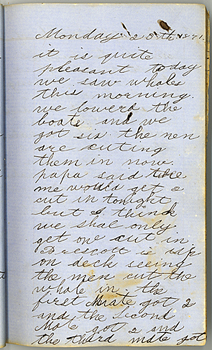 Monday 25th 1871.
it is quite
pleasant today
we saw whales
this morning.
we lowerd the
boats and we
got six the men
are cuting
them in now.
papa said
we would get 2
cut in tonight
but I think
we shal only
get one cut in.
Prescott is
on deck seing
the men cut the
whale in. the
first Mate got 2
and the second
Mate got 2 and
the third mate got